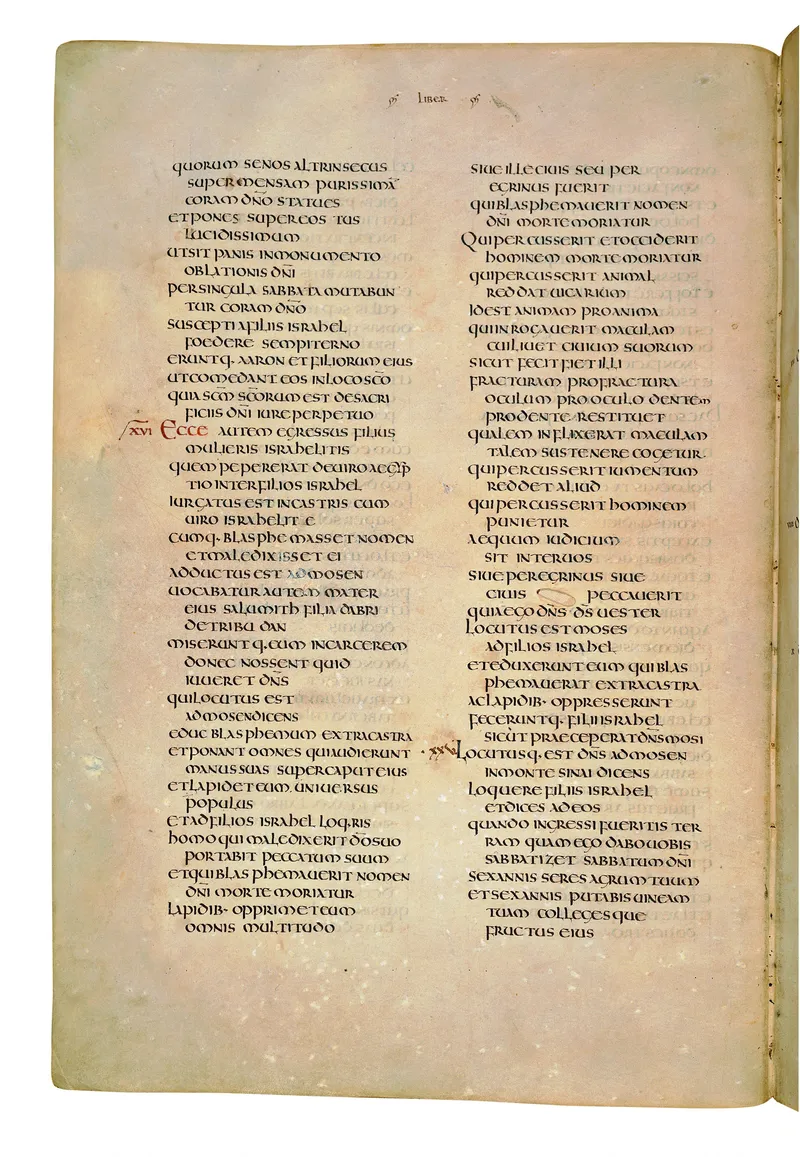 LIBER
QUORUM SENOS ALTRINSECUS
SUPER MENSAM PURISSIMĀ
CORAM DNO STATUES
ET PONES SUPER EOS TUS
LUCIDISSIMUM
UT SIT PANIS IN MONUMENTO
OBLATIONIS DNI
PER SINGULA SABBATA MUTABUN
TUR CORAM DNO
SUSCEPTI A FILIIS ISRAHEL
FOEDERE SEMPITERNO
ERUNTQ· AARON ET FILIORUM EIUS
UT COMEDANT EOS IN LOCO SCO
QUIA SCM SCORUM EST DE SACRI
FICIIS DNI IURE PERPETUO
XVI ECCE AUTEM EGRESSUS FILIUS
MULIERIS ISRAHELITIS
QUEM PEPERERAT DE UIRO AEGYP
TIO INTER FILIOS ISRAHEL
IURGATUS EST IN CASTRIS CUM
UIRO ISRAHELITE
CUMQ· BLASPHEMASSET NOMEN
ET MALEDIXISSET EI
ADDUCTUS EST AD MOSEN
UOCABATUR AUTEM MATER
EIUS SALUMITH FILIA DABRI
DE TRIBU DAN
MISERUNTQ· EUM IN CARCEREM
DONEC NOSSENT QUID
IUUERET DNS
QUI LOCUTUS EST
AD MOSEN DICENS
EDUC BLASPHEMUM EXTRA CASTRA
ET PONANT OMNES QUI AUDIERUNT
MANUS SUAS SUPER CAPUT EIUS
ET LAPIDET EUM UNIUERSUS
POPULUS
ET AD FILIOS ISRAHEL LOQ·RIS
HOMO QUI MALEDIXERIT DO SUO
PORTABIT PECCATUM SUUM
ET QUI BLASPHEMAUERIT NOMEN
DNI MORTE MORIATUR
LAPIDIB· OPPRIMET EUM
OMNIS MULTITUDO
SIUE ILLE CIUIS SEU PER
EGRINUS FUERIT
QUI BLASPHEMAUERIT NOMEN
DNI MORTE MORIATUR
QUI PERCUSSERIT ET OCCIDERIT
HOMINEM MORTE MORIATUR
QUI PERCUSSERIT ANIMAL
REDDAT UICARIUM
ID EST ANIMAM PRO ANIMA
QUI INROGAUERIT MACULAM
CUILIUET CIUIUM SUORUM
SICUT FECIT FIET ILLI
FRACTURAM PRO FRACTURA
OCULUM PRO OCULO DENTEM
PRO DENTE RESTITUET
QUALEM INFLIXERAT MACULAM
TALEM SUSTENERE COGETUR·
QUI PERCUSSERIT IUMENTUM
REDDET ALIUD
QUI PERCUSSERIT HOMINEM
PUNIETUR
AEQUUM IUDICIUM
SIT INTER UOS
SIUE PEREGRINUS SIUE
CIUIS PECCAUERIT
QUIA EGO DNS DS UESTER
LOCUTUS EST MOSES
AD FILIOS ISRAHEL
ET EDUXERUNT EUM QUI BLAS
PHEMAUERAT EXTRA CASTRA
AC LAPIDIB· OPPRESSERUNT
FECERUNTQ· FILII ISRAHEL
SICUT PRAECEPERAT DNS MOSI
LOCUTUSQ· EST DNS AD MOSEN
IN MONTE SINAI DICENS
LOQUERE FILIIS ISRAHEL
ET DICES AD EOS
QUANDO INGRESSI FUERITIS TER
RAM QUAM EGO DABO UOBIS
SABBATIZET SABBATUM DNI
SEX ANNIS SERES AGRUM TUUM
ET SEX ANNIS PUTABIS UINEAM
TUAM COLLEGESQUE
FRUCTUS EIUS